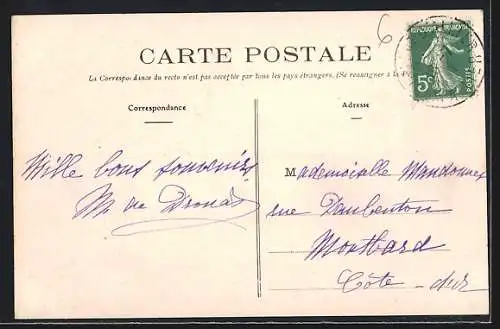 6
CARTE POSTALE
La Correspondance du recto n'est pas acceptée par tous les pays étrangers. (Se renseigner à la
REPUBLIQUE
5c
POSTES
Correspondance
Adresse
Mille bons souvenirs
Mademoiselle
rue Daubenton
Montbard
Côte-d'or